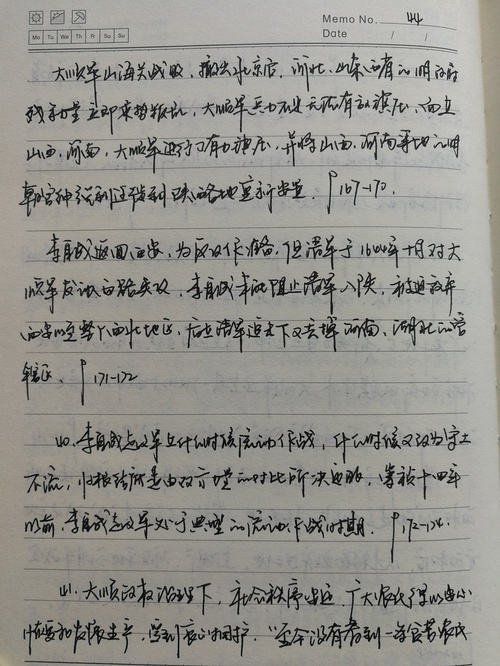 Memo No. 44
Mo Tu We Th Fr Sa Su
Date / /
大顺军山海关战败，撤出北京后，河北、山东的有的明政府
残余力量立即乘势叛乱，大顺军兵力不足无法有效镇压，而在
山西、河南，大顺军进行了有力镇压，并将山西、河南等地的明
朝官绅强制迁移到陕西各地重新安置。P167-170.
李自成返回西安，为反攻作准备，但清军于1644年十月对大
顺军发动两路夹攻，李自成未能阻止清军入陕，被迫放弃
西安以至整个西北地区，后在清军追击下又丢掉河南、湖北的管
辖区。P171-172
40. 李自成起义军在什么时候流动作战，什么时候又改为守土
不流，归根结底是由双方力量的对比所决定的，崇祯十四年
以前，李自成起义军处于典型的流动作战时期。P172-174.
41. 大顺政权治理下，社会秩序安定，广大农民得以安心
恢复和发展生产，受到农民的拥护，“至今没有看到一